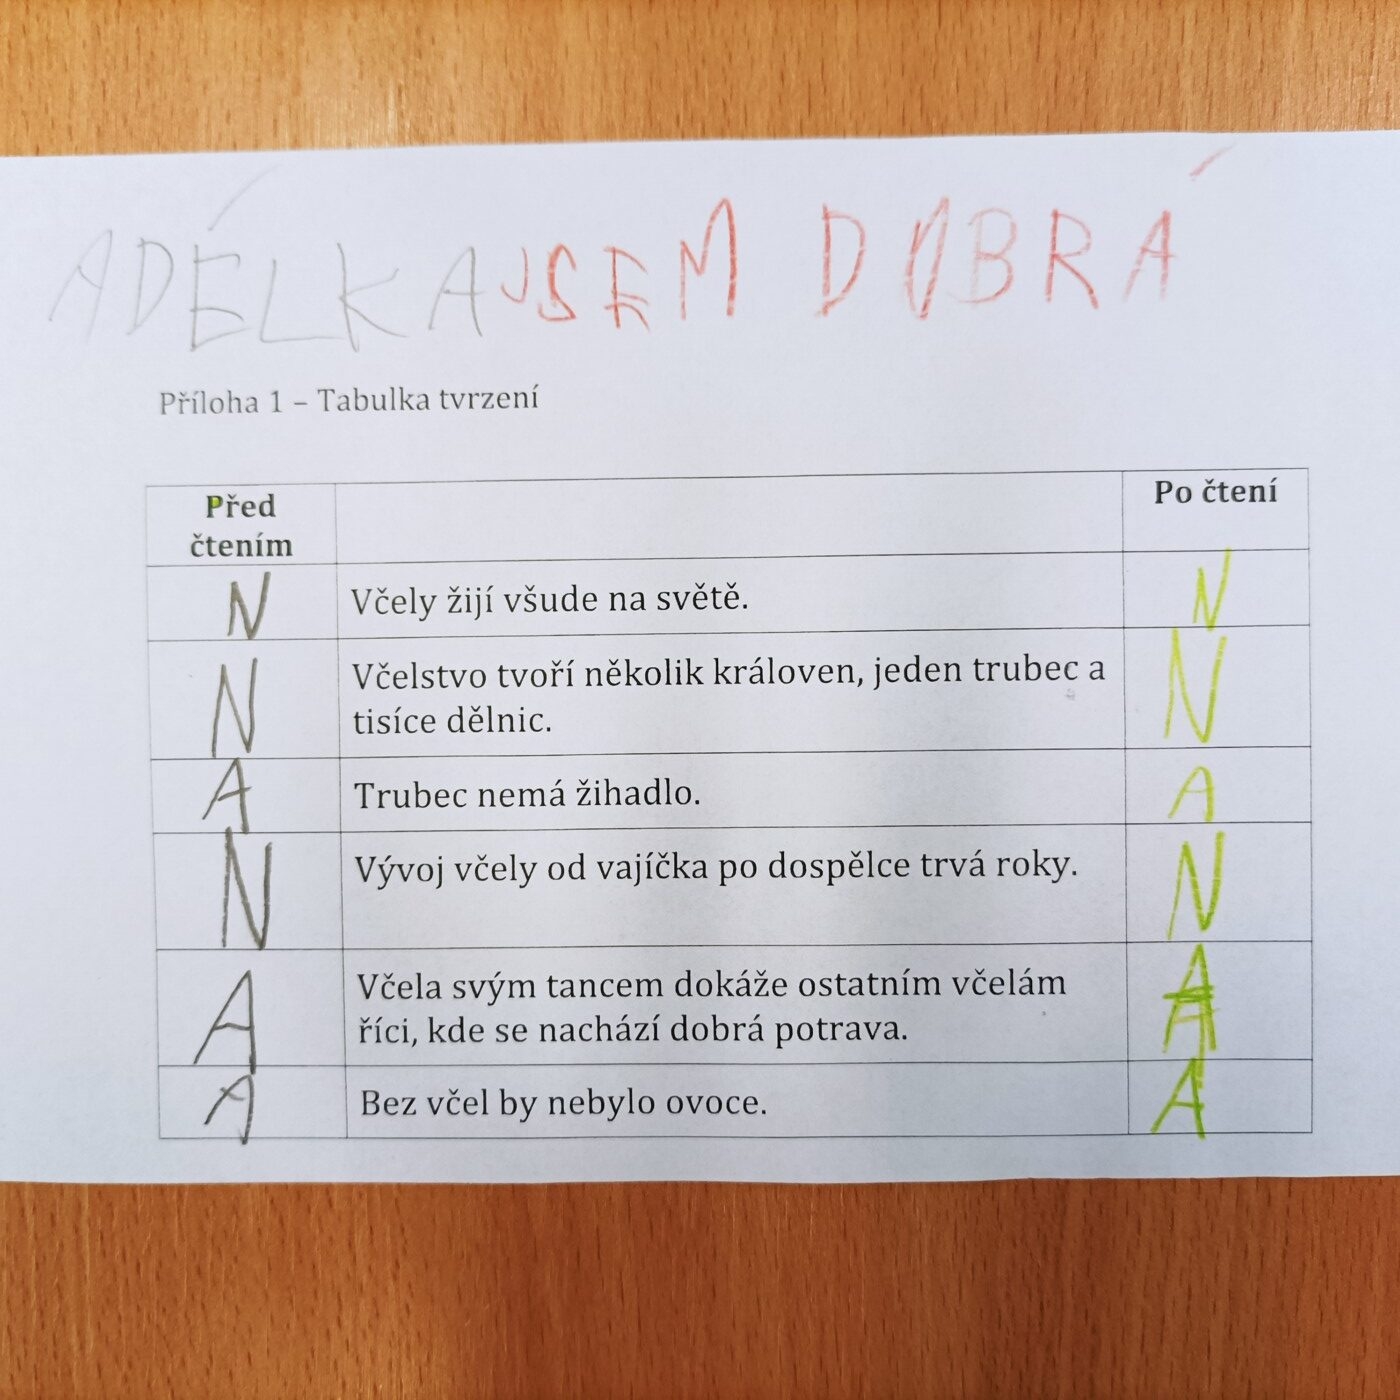 ADÉLKA JSEM DOBRÁ
Příloha 1 – Tabulka tvrzení
Před
čtením
Po čtení
N Včely žijí všude na světě. N
N Včelstvo tvoří několik královen, jeden trubec a
tisíce dělnic. N
A Trubec nemá žihadlo. A
N Vývoj včely od vajíčka po dospělce trvá roky. N
A Včela svým tancem dokáže ostatním včelám
říci, kde se nachází dobrá potrava. A
A Bez včel by nebylo ovoce. A